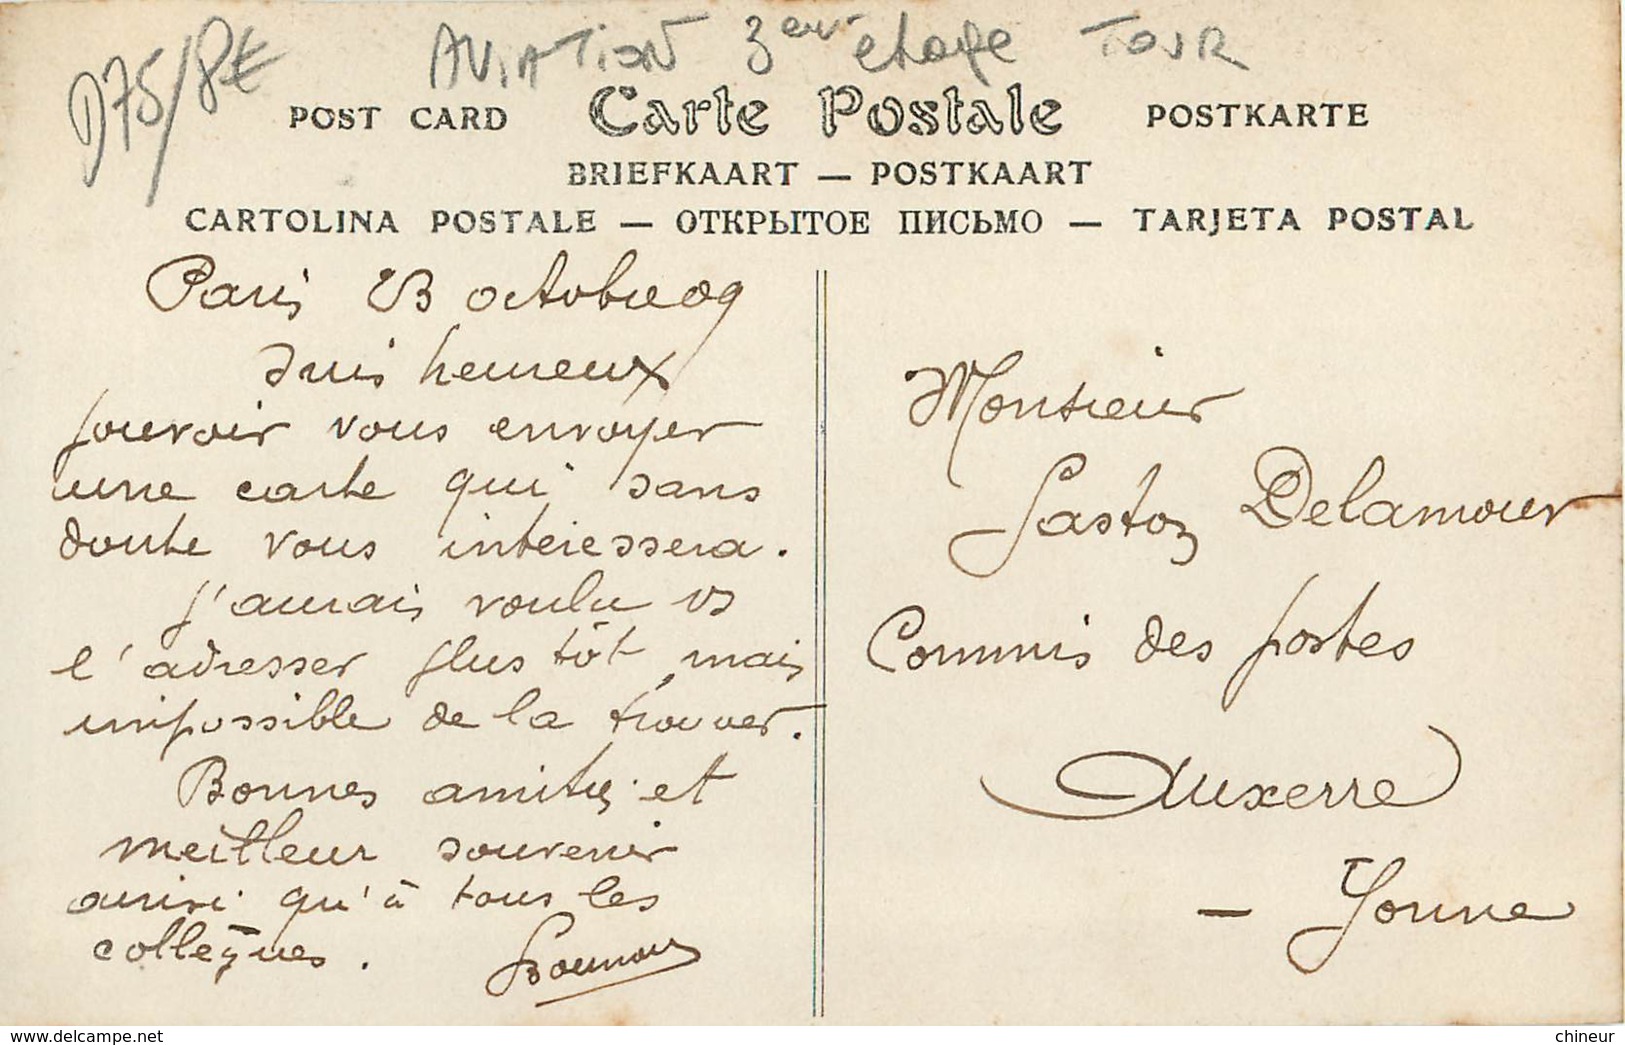 D75/8€
AVIATION 3eme etage TOUR
POST CARD Carte Postale POSTKARTE
BRIEFKAART — POSTKAART
CARTOLINA POSTALE — ОТКРЫТОЕ ПИСЬМО — TARJETA POSTAL
Paris 23 octobre 09
Suis heureux
pouvoir vous envoyer
une carte qui sans
doute vous intéressera.
J'aurais voulu vs
l'adresser plus tôt, mais
impossible de la trouver.
Bonnes amitiés et
meilleur souvenir
ainsi qu'à tous les
collègues.
Monsieur
Gaston Delamour
Commis des postes
Auxerre
- Yonne
delcampe.net
chineur